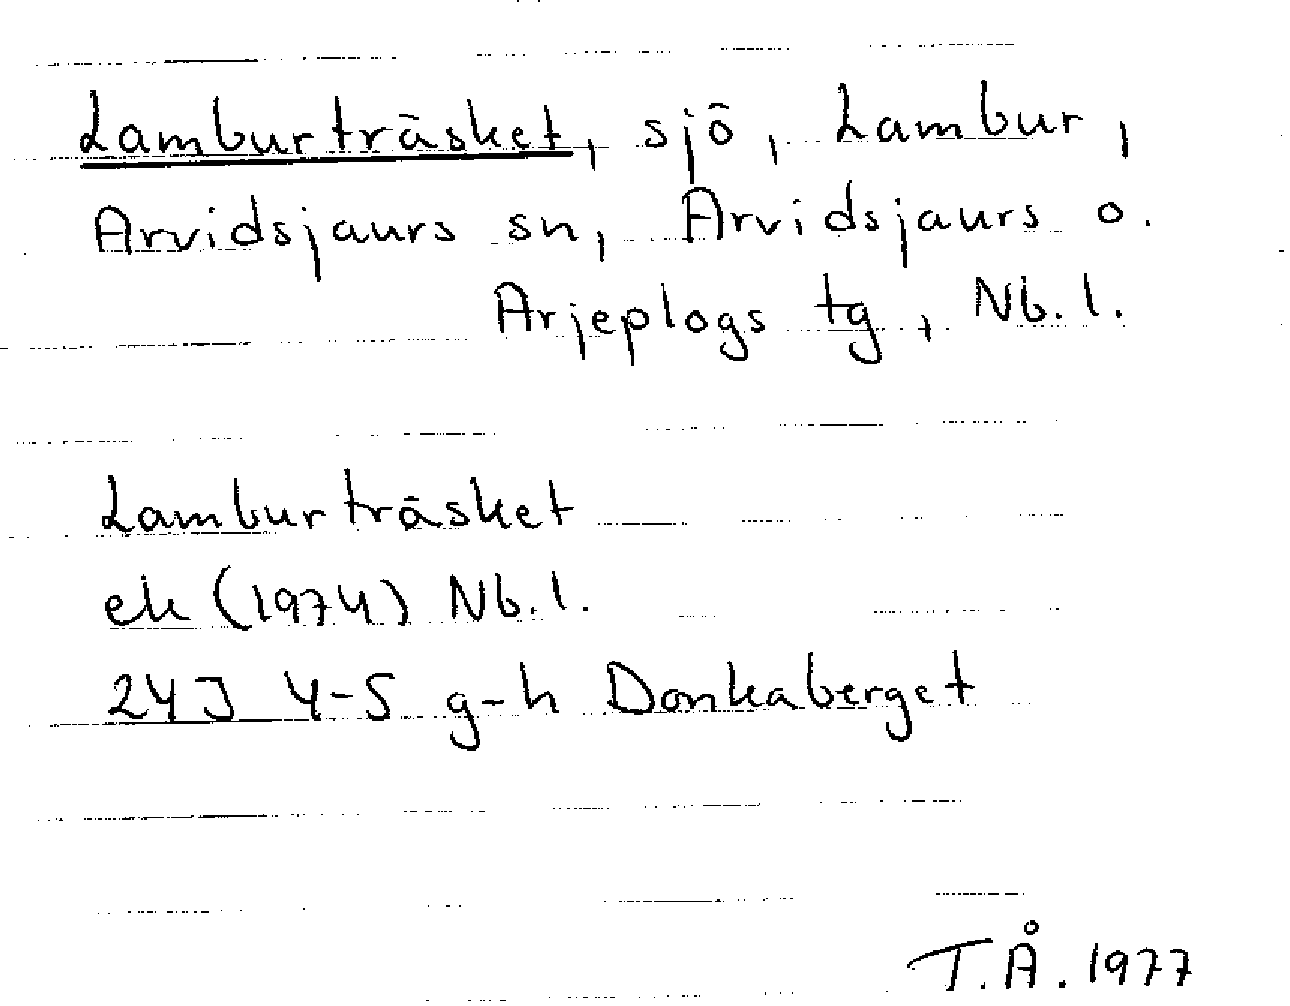 Lamburträsket, sjö, Lambur,
Arvidsjaurs sn, Arvidsjaurs o.
Arjeplogs tg, Nb. l.
Lamburträsket
ek (1974) Nb. l.
24J 4-5 g-h Donkaberget
T.Å. 1977